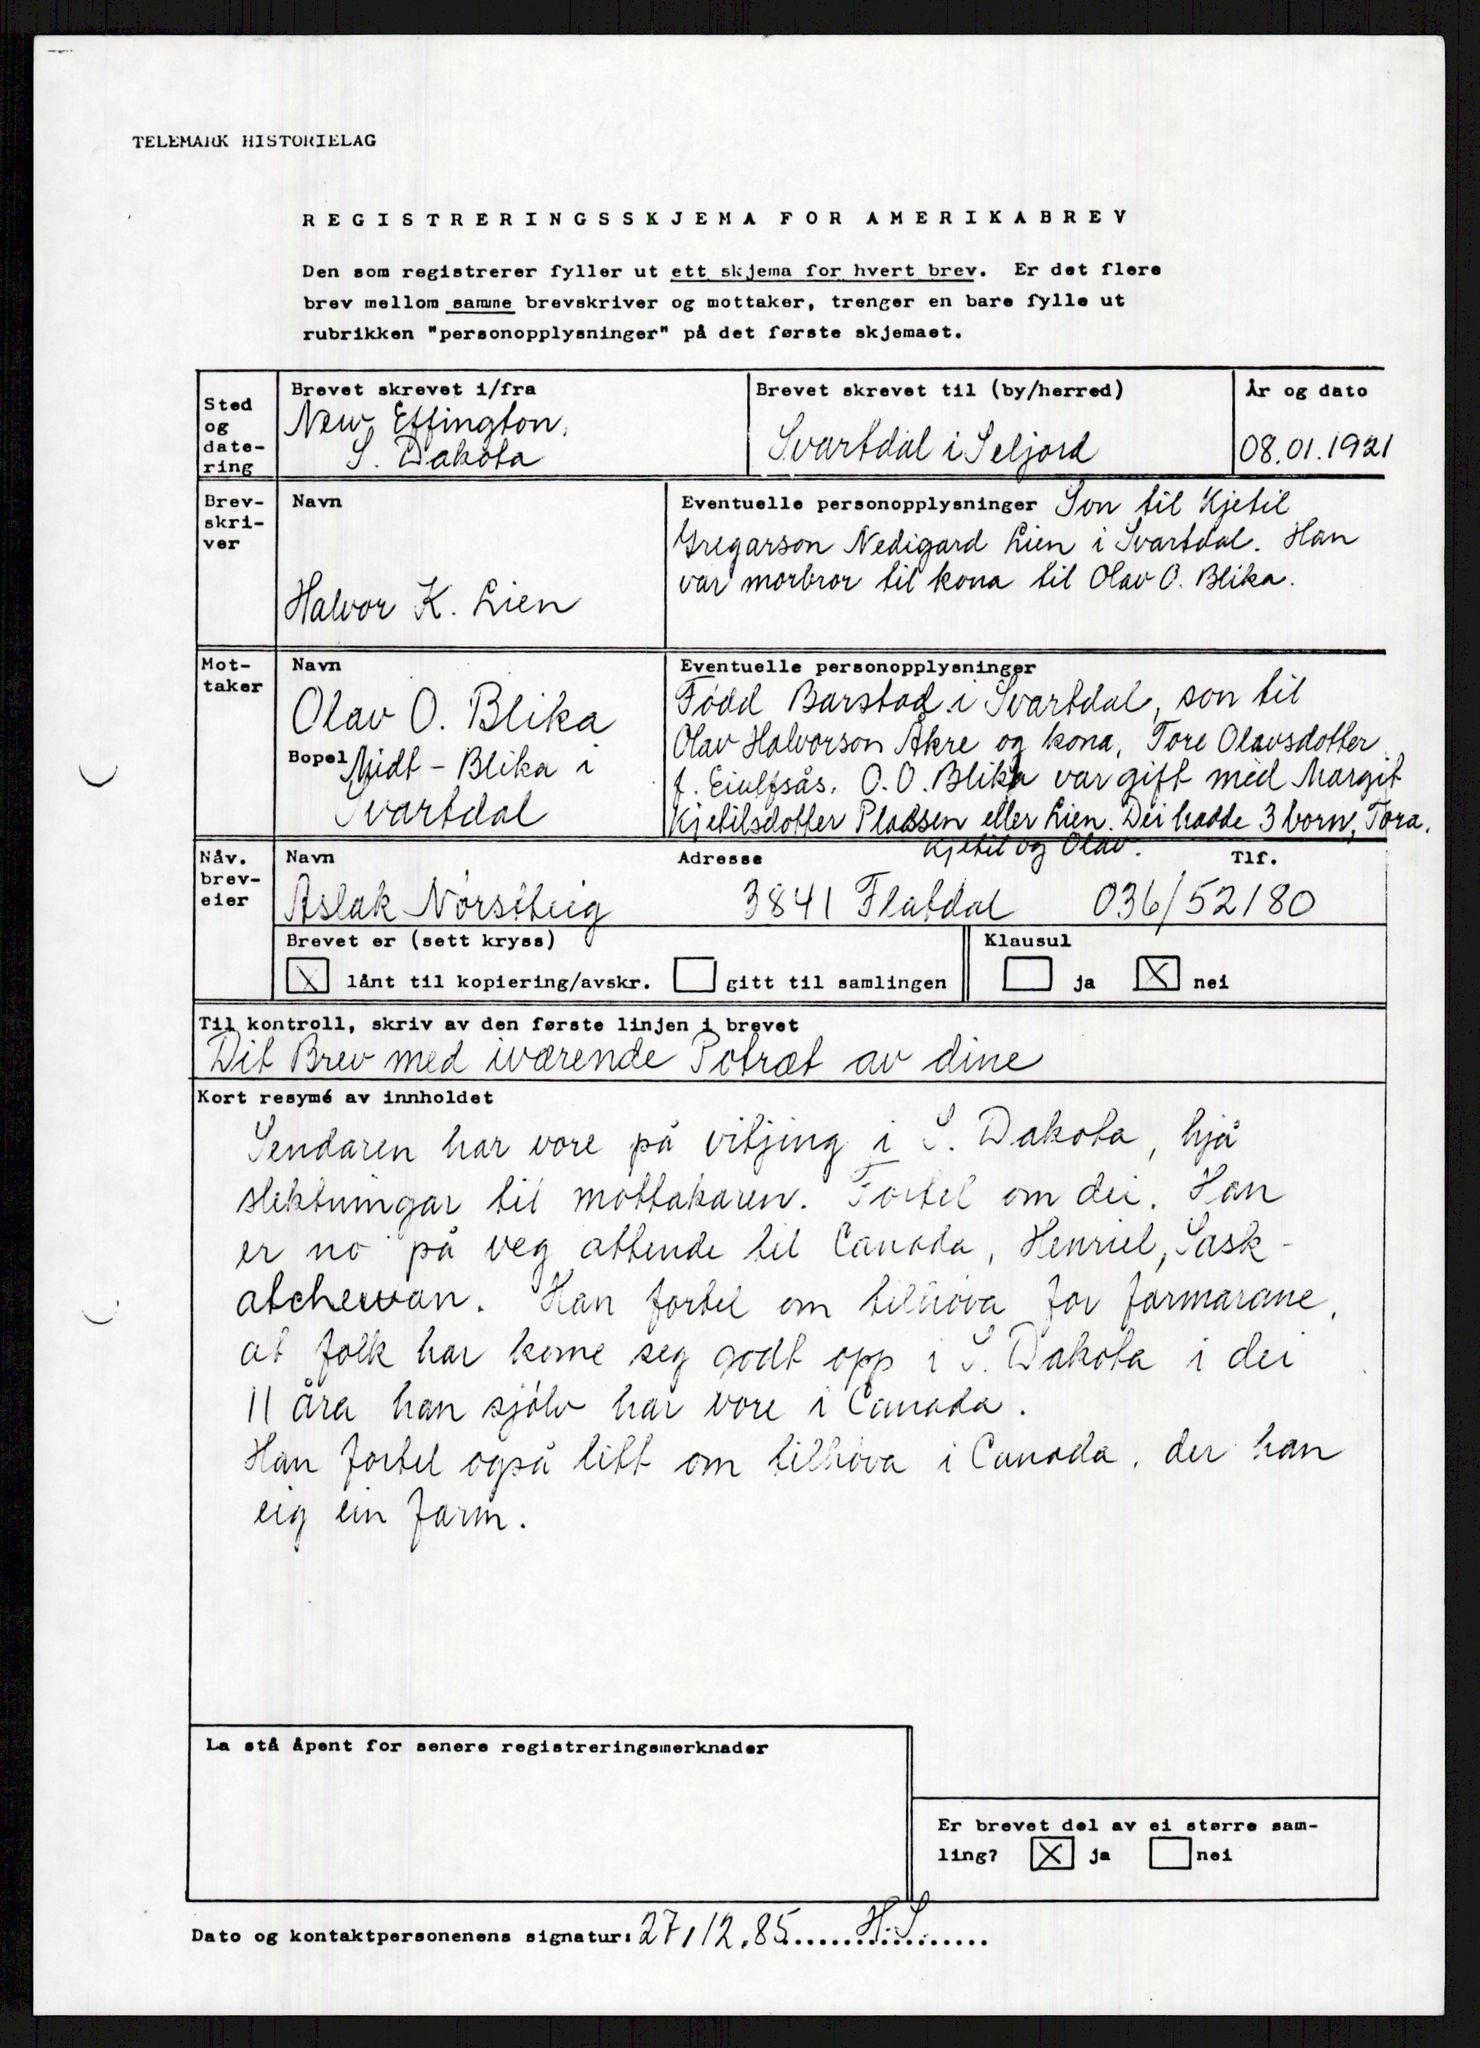 TELEMARK HISTORIELAG
REGISTRERINGSSKJEMA FOR AMERIKABREV
Den som registrerer fyller ut ett skjema for hvert brev. Er det flere
brev mellom samme brevskriver og mottaker, trenger en bare fylle ut
rubrikken "personopplysninger" på det første skjemaet.
Sted og date-ring
Brevet skrevet i/fra
New Effington,
S. Dakota
Brevet skrevet til (by/herred)
Svartdal i Seljord
År og dato
08.01.1921
Brev-
skri-
ver
Navn
Halvor K. Lien
Eventuelle personopplysninger Son til Kjetil
Gregarson Nedigard Lien i Svartdal. Han
var morbror til kona til Olav O. Blika.
Mot-
taker
Navn
Olav O. Blika
Bopel Midt-Blika i
Svartdal
Eventuelle personopplysninger
Fødd Barstad i Svartdal, son til
Olav Halvorson Åkre og kona, Tore Olavsdotter
f. Eiulfsås. O.O. Blika var gift med Margit
Kjetilsdotter Plassen eller Lien. Dei hadde 3 born, Tora,
Kjetil og Olav.
Nåv.
brev-
eier
Navn
Aslak Nørsteig
Adresse
3841 Flatdal
Tlf.
036/52180
Brevet er (sett kryss)
X lånt til kopiering/avskr. gitt til samlingen
Klausul
ja X nei
Til kontroll, skriv av den første linjen i brevet
Dit Brev med iværende Potræt av dine
Kort resymé av innholdet
Sendaren har vore på vitjing i S. Dakota, hjå
slektningar til mottakaren. Fortel om dei. Han
er no på veg attende til Canada, Henriel, Sask-
atchewan. Han fortel om tilhøva for farmarane,
at folk har kome seg godt opp i S. Dakota i dei
11 åra han sjølv har vore i Canada.
Han fortel også litt om tilhøva i Canada, der han
eig ein farm.
La stå åpent for senere registreringsmerknader
Er brevet del av ei større sam-
ling? X ja nei
Dato og kontaktpersonenens signatur: 27.12.85......H.S.......